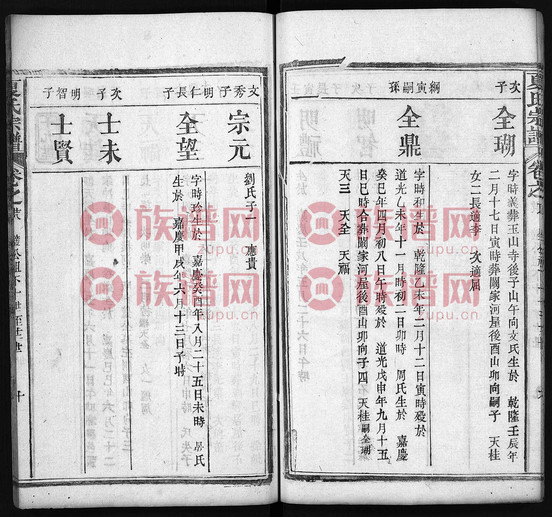 夏氏宗譜
次子
全瑚
字時義葬玉山寺後子山午向文氏生於 乾隆壬辰年
二月十七日寅時葬關家河屋後酉山卯向嗣子 天桂
女二長適李 次適屈
綱寅嗣孫
全鼎
字時和生於 乾隆乙未年二月十二日寅時歿於
道光乙未年十一月時初二日卯時 周氏生於 嘉慶
癸巳年四月初八日午時歿於 道光戊申年九月十五
日巳時合葬關家河屋後酉山卯向子四 天桂嗣全瑚
天三 天全 天福
文秀子
宗元
劉氏子一 應貴
明仁長子
全望
字時珍生於 嘉慶癸酉年八月二十五日未時 屈氏
生於 嘉慶甲戌年六月十三日子時
次子
士未
明智子
士賢
夏氏宗譜
族譜网
zupu.cn